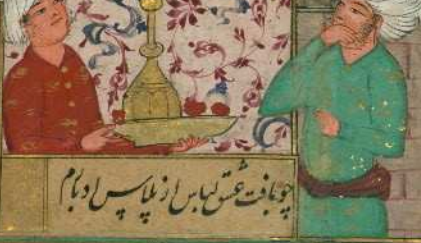 چو بافت عشق لباس از پلاس ادبارم